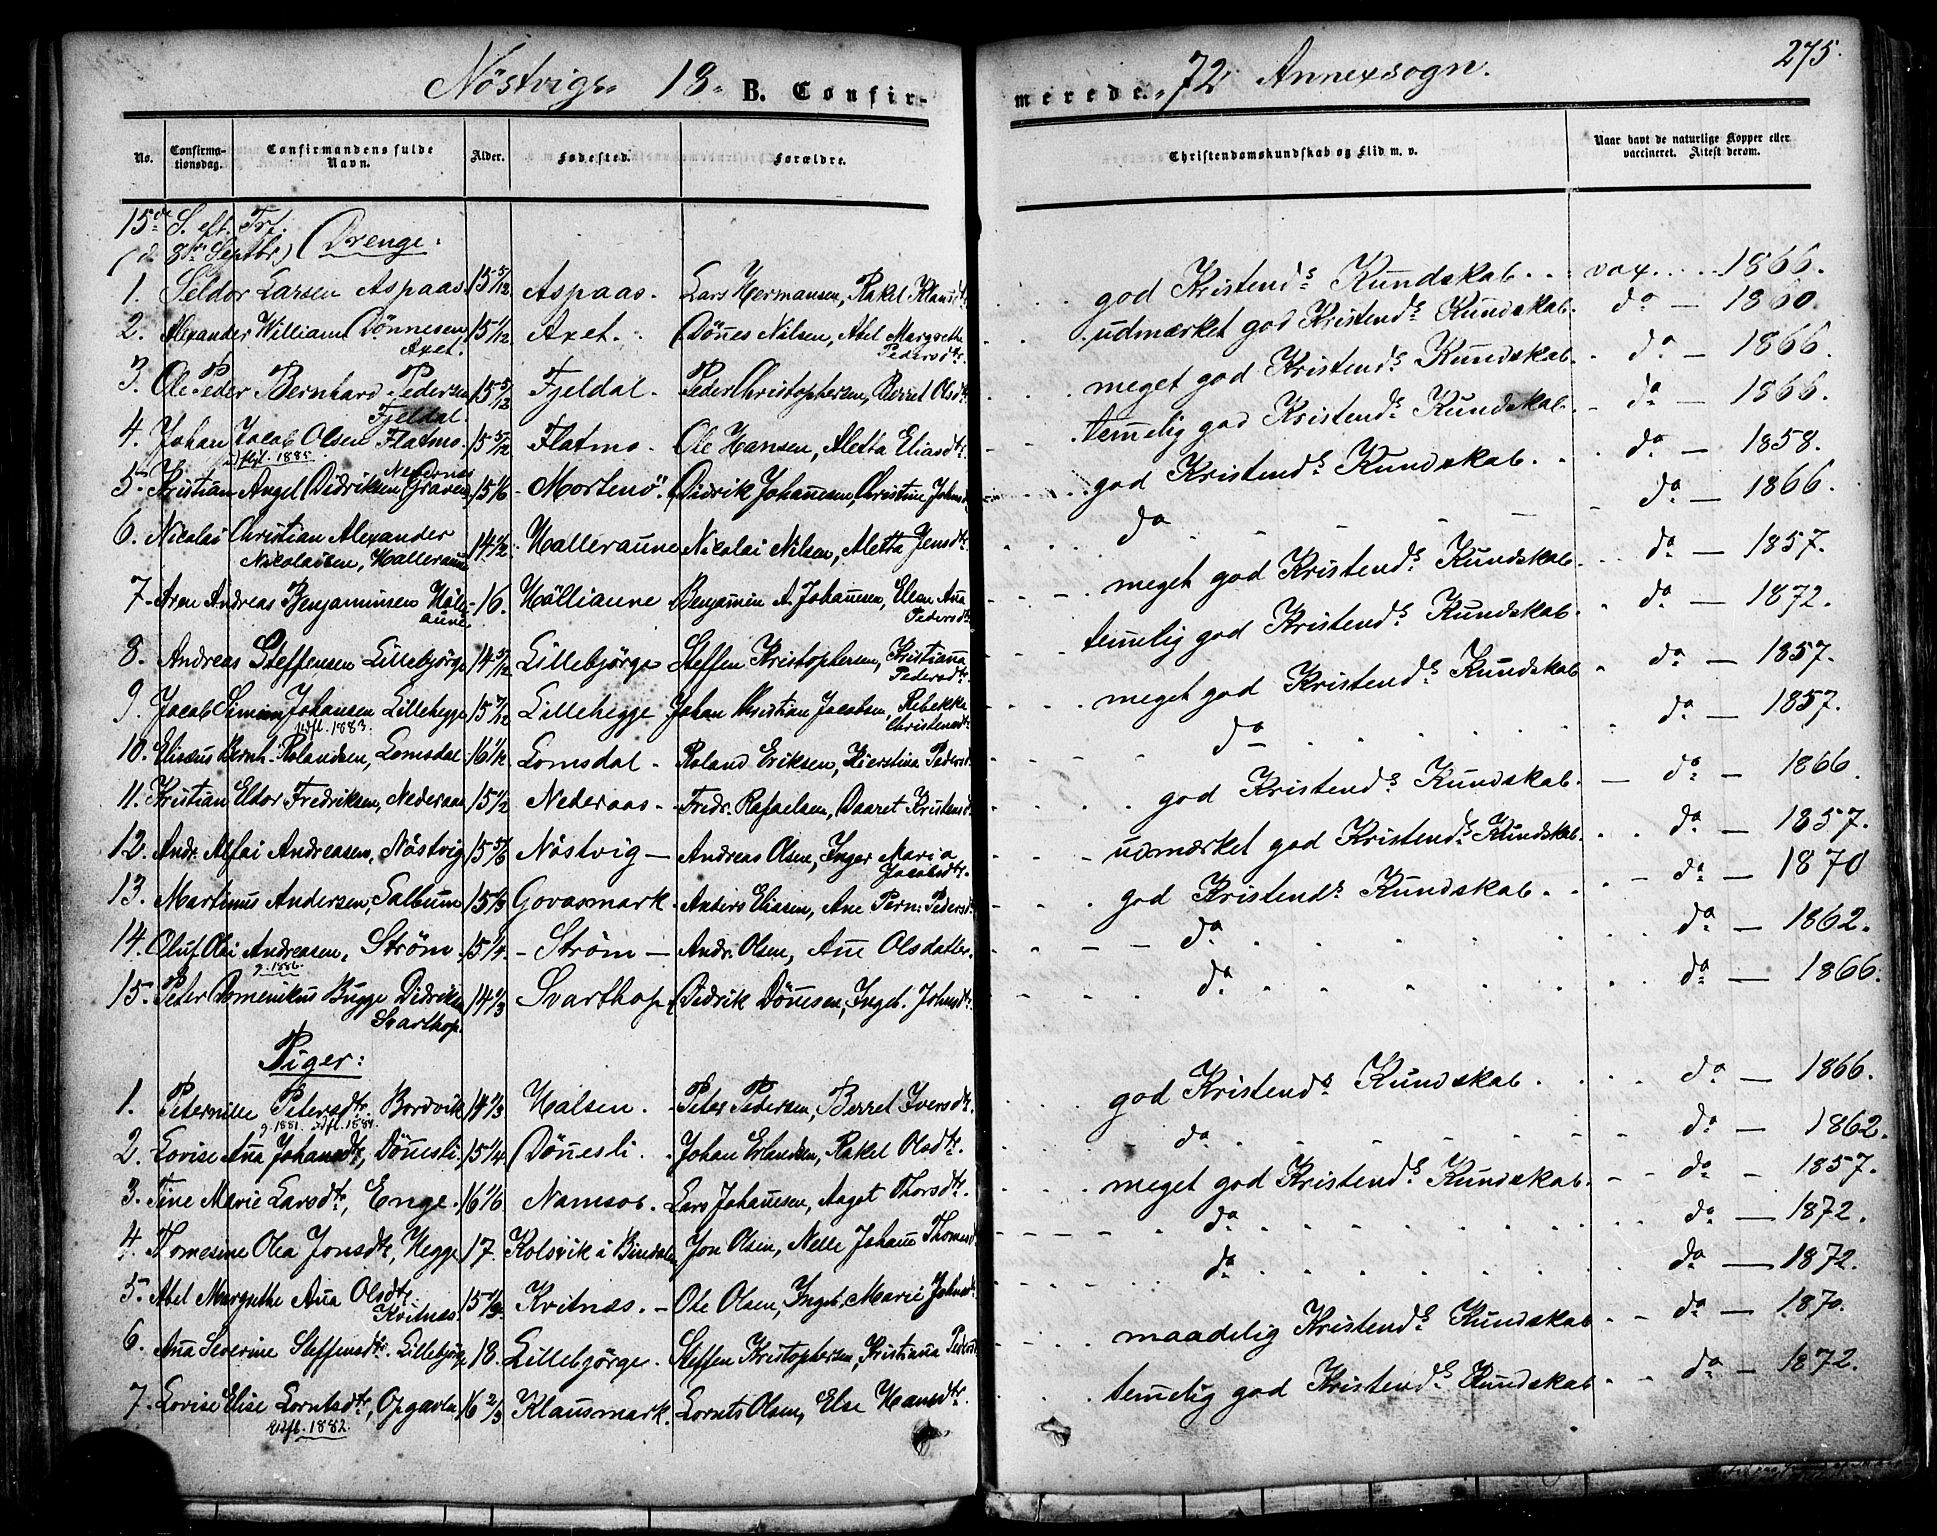 275.
Nöstvigs 18 B. Confir-merede. 72 Annexsogn.
No. Confirma-tionsdag. Confirmandens fulde Navn. Alder. Fødested. Forældre. Christendomskundskab og Flid m. v. Naar havt de naturlige Kopper eller vaccineret. Attest derom.
15de S. eft. Trf.
(d. 8de Septbr) Drenge.
1. Seldor Larsen Aspaas. 15 5/12 Aspaas. Lars Hermansen, Rakel Klausdtr. god Kristends Kundskab. vax. 1866.
2. Alexander William Dönnesen Axet. 15 1/12 Axet. Dönes Nilsen, Abel Margrethe Pedersdtr. udmærket god Kristends Kundskab. do 1860.
3. Ole Peder Bernhard Pedersen Fjeldal 15 5/12 Fjeldal. Peder Christophersen, Berret Olsdtr. meget god Kristends Kundskab. do 1866.
4. Johan Jacob Olsen Flatmo. 15 5/12 Flatmo. Ole Hansen, Aletta Eliasdtr. temelig god Kristends Kundskab. do 1866.
udfl. 1885.
5. Kristian Angel Didriksen Graven 15 1/6 Mortenö. Didrik Johannesen, Christine Johnsdtr. god Kristends Kundskab. do 1858.
6. Nicolai Christian Alexander Nikolaisen, Halleraune 14 1/2 Halleraune Nicolai Nilsen, Aletta Jensdtr. do do 1866.
7. Aron Andreas Benjaminsen Hölliaune 16. Hölliaune Benjamin A. Johannesen, Elean Ana Pedersdtr. meget god Kristends Kundskab. do 1857.
8. Andreas Steffensen Lillebjörge 14 5/12 Lillebjörge Steffen Kristophersen, Kristianna Pedersdtr. temelig god Kristends Kundskab. do 1872.
9. Jacob Simon Johansen Lillehegge 15 7/12 Lillehegge Johan Christian Jacobsen, Rebekka Christensdtr. meget god Kristends Kundskab do 1857.
udfl. 1883.
10. Elisæus Bernh. Rolandsen, Lomsdal 16 1/12 Lomsdal. Roland Eriksen, Kierstina Pedersd. do do 1857.
11. Kristian Eldor Fredriksen, Nederaas 15 1/2 Nederaas. Fredr. Rafaelsen, Daaret Kristensd. god Kristends Kundskab. do 1866.
12. Andr. Alfai Andreasen, Nöstvig 15 5/6 Nöstvig Andreas Olsen, Inger Maria Jacobsdtr. udmærket god Kristends Kundskab. do 1857.
13. Martinus Andersen, Salbum 15 2/3 Govasmark. Anders Eliasen, Ane Pern. Pedersd. god Kristends Kundskab. do 1870
14. Oluf Olai Andreasen, Ström. 15 1/4 Ström Andr. Olsen, Ane Olsdatter. do do 1862.
g. 1886.
15. Peter Domenikus Bugge Didriksen Svarthop. 14 1/3 Svarthop. Didrik Dönesen, Ingeb. Johnsdtr. do do 1866.
Piger:
1. Peternille Petersdtr. Bordvik 14 1/3 Halsen. Peter Pedersen, Berret Iversdtr. god Kristends Kundskab. do 1866.
g. 1881. udfl. 1884.
2. Lovise Ana Johansdtr, Dönesli. 15 1/4 Dönesli. Johan Erlandsen, Rakel Olsdtr. do do 1862.
3. Tine Marie Larsdtr, Enge. 16 1/6 Namsos. Lars Johannesen, Aaget Thorsdtr. meget god Kristends Kundskab. do 1857.
4. Thomesine Olea Jonsdtr, Hegge 17. Kolsvik i Bindalen Jon Olsen, Nelle Johanne Thomesd. do do 1872.
5. Abel Margrethe Ana Olsdtr. Kvitnæs. 15 1/3 Kvitnæs. Ole Olsen, Ingeb. Marie Johnsdtr. do do 1872.
6. Ana Severine Steffensdtr. Lillebjörge 18. Lillebjörge. Steffen Kristophersen, Kristiana Pedersd. maadelig Kristends Kundskab do 1870.
7. Lovise Elise Lorntsdtr, Opgavlen 16 2/3 Klausmark. Lornts Olsen, Else Hansdtr. temelig god Kristends Kundskab do 1872.
Udfl. 1882.